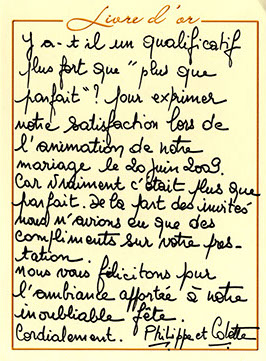 Livre d'or
Y a-t il un qualificatif
plus fort que "plus que
parfait"? pour exprimer
notre satisfaction lors de
l'animation de notre
mariage le 20 juin 2009.
Car vraiment c'était plus que
parfait. De la part des invités
nous n'avions eu que des
compliments sur votre pres-
tation.
nous vous félicitons pour
l'ambiance apportée à notre
inoubliable fête.
Cordialement. Philippe et Colette